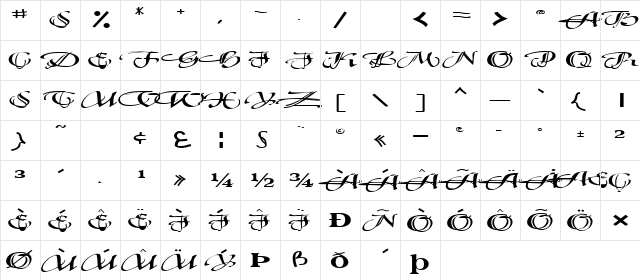 # $ % * + , - . / < = > @ A B
C D E F G H I J K L M N O P Q R
S T U V W X Y Z [ \ ] ^ _ ` { |
} ~ ¢ £ ¦ § ¨ © « ¬ ® ¯ ° ± ²
³ ´ · ¹ » ¼ ½ ¾ À Á Â Ã Ä Å Æ Ç
È É Ê Ë Ì Í Î Ï Ð Ñ Ò Ó Ô Õ Ö ×
Ø Ù Ú Û Ü Ý Þ ß ð þ